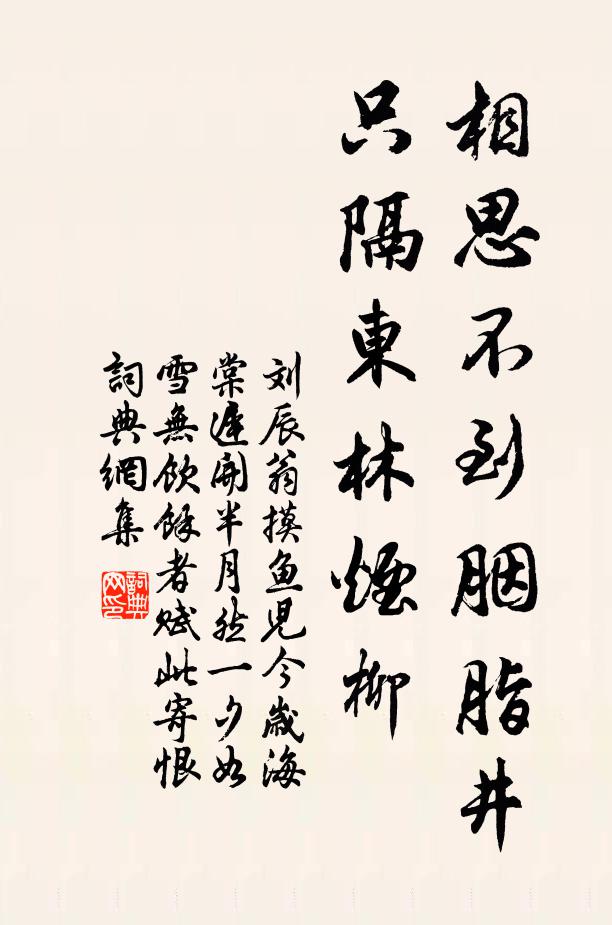 相思不到胭脂井
只隔東林煙柳
刘辰翁摸鱼児今歲海
棠遲開半月然一夕如
雪無飲餘者赋此寄恨
詞典網集
詞典网印